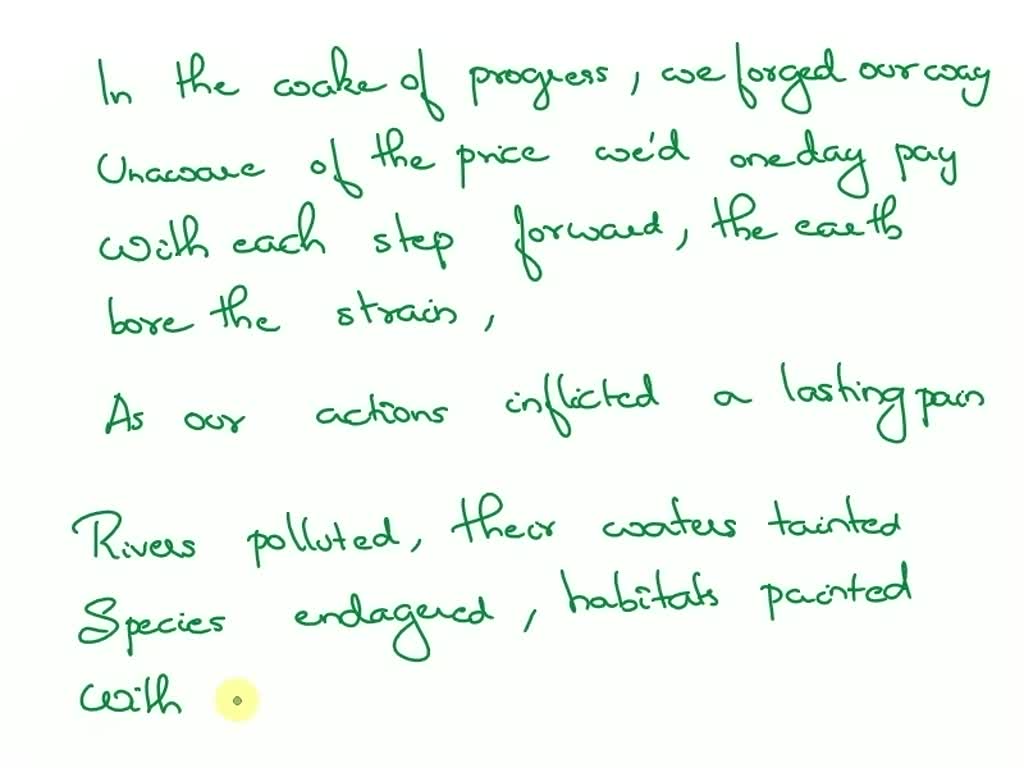 In the wake of progress, we forged our way
Unaware of the price we'd one day pay
with each step forward, the earth
bore the strain,
As our actions inflicted a lasting pain
Rivers polluted, their waters tainted
Species endagered, habitats painted
with